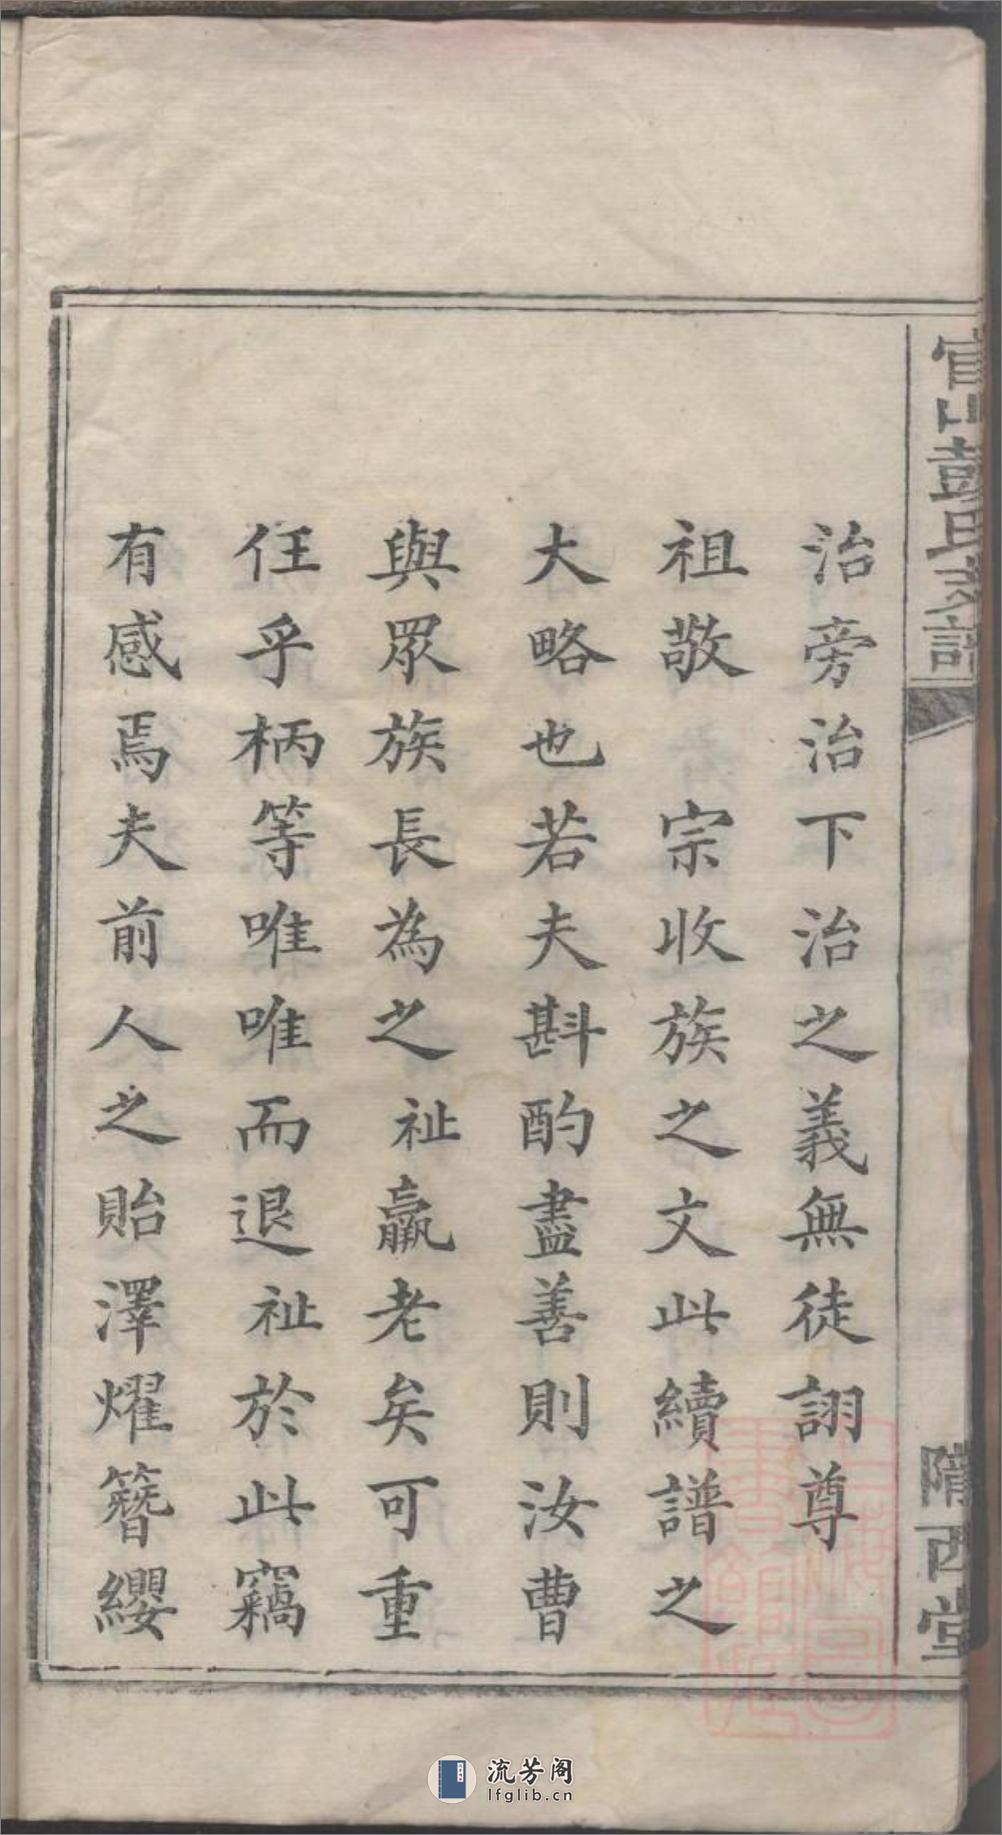 官山彭氏支譜
隴西堂
治旁治下治之義無徒詡尊
祖敬　宗收族之文此續譜之
大略也若夫斟酌盡善則汝曹
與眾族長為之祉羸老矣可重
任乎柄等唯唯而退祉於此竊
有感焉夫前人之貽澤燿簪纓
流芳阁
lfglib.cn